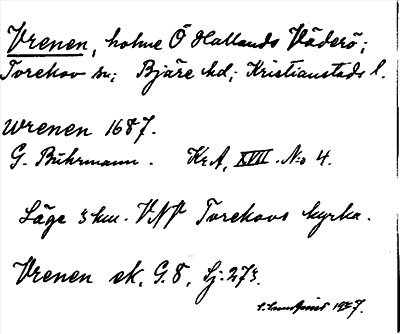 Vrenen, holme Ö Hallands Väderö;
Torekov sn; Bjäre hd; Kristianstads l.
Wrenen 1687.
G. Buhrmann. KrA, XVII. No 4.
Läge 3 km. VNV Torekovs kyrka.
Vrenen ek. G.8, Sj: 273.
1927.